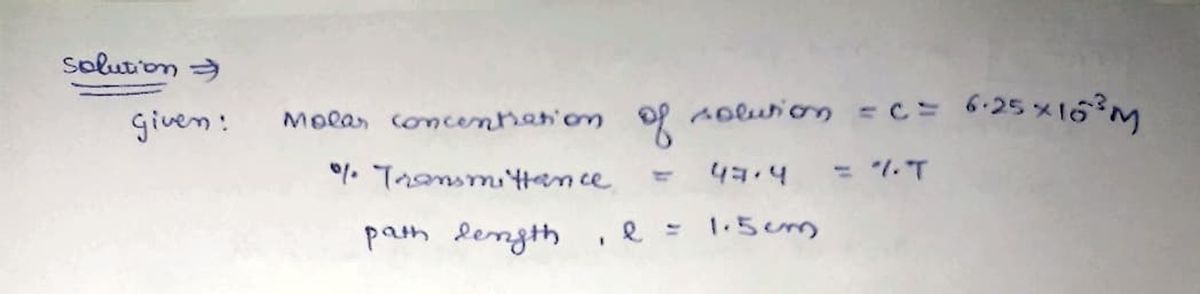 Solution ⇒
Given: Molar concentration of solution = C = 6.25 × 10⁻³ M
% Transmittance = 47.4 = %T
path length, l = 1.5 cm